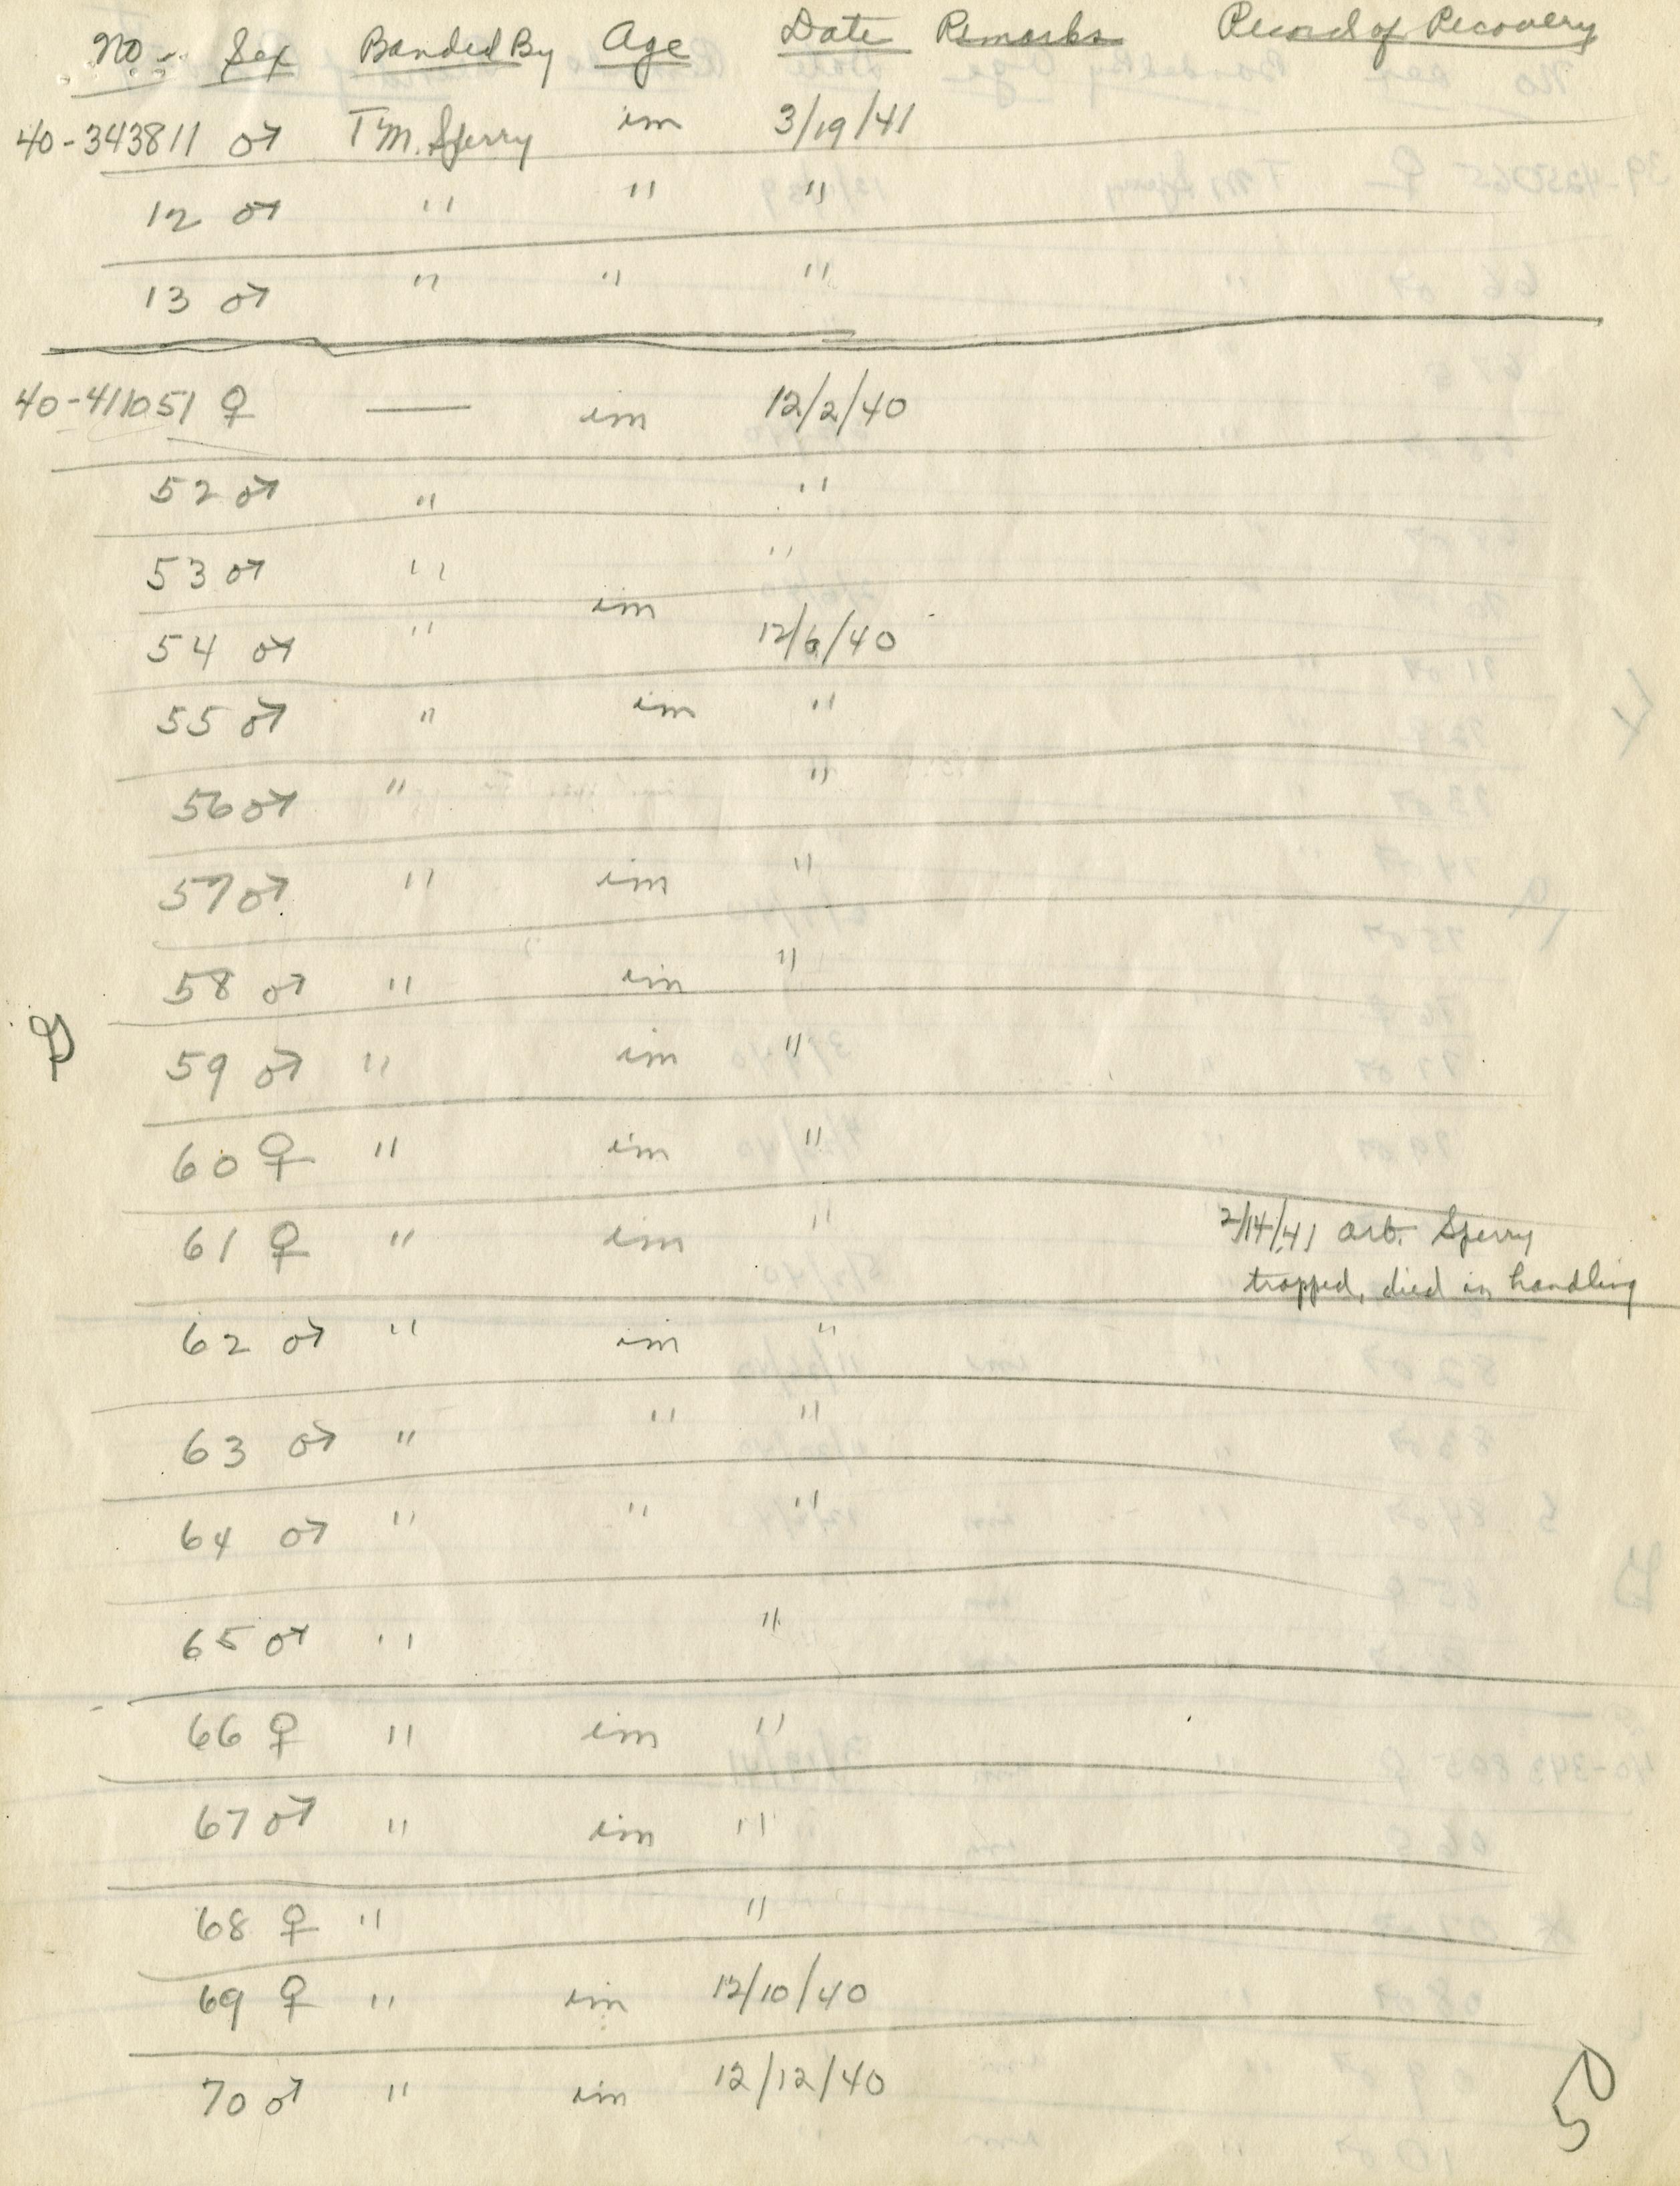 No. Sex Banded By Age Date Remarks Record of Recovery
40-343811 ♂ T.M. Sperry im 3/19/41
12 ♂ " " "
13 ♂ " " "
40-411051 ♀ — im 12/2/40
52 ♂ " "
53 ♂ " "
54 ♂ " im 12/6/40
55 ♂ " im "
56 ♂ " "
57 ♂ " im "
58 ♂ " im "
59 ♂ " im "
60 ♀ " im "
61 ♀ " im " 2/14/41 Arb. Sperry
trapped, died in handling
62 ♂ " im "
63 ♂ " " "
64 ♂ " " "
65 ♂ " "
66 ♀ " im "
67 ♂ " im "
68 ♀ " "
69 ♀ " im 12/10/40
70 ♂ " im 12/12/40